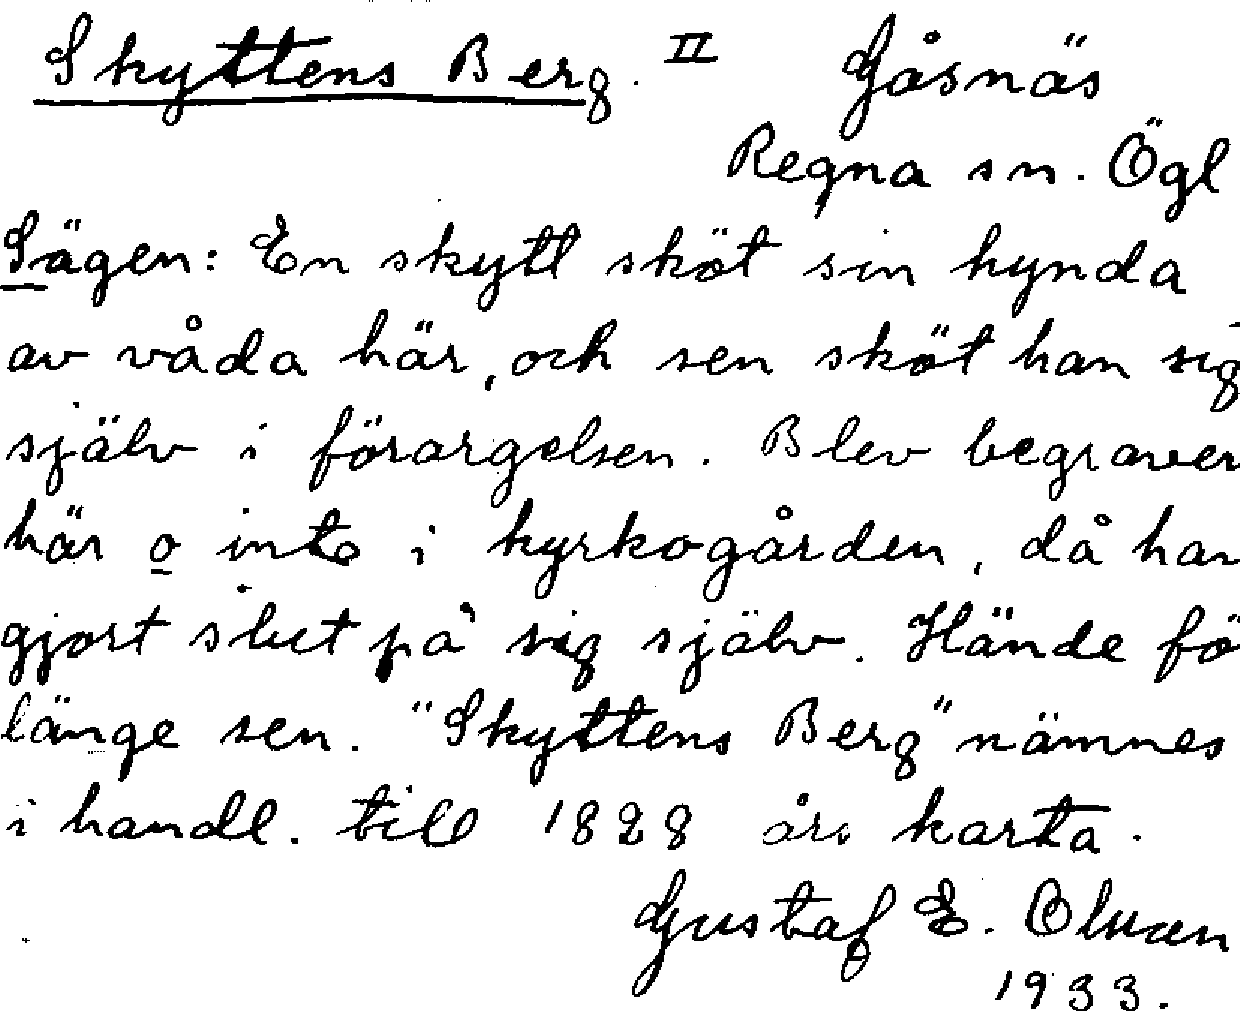 Skyttens Berg. II Gåsnäs
Regna sn. Ögl
Sägen: En skytt sköt sin hynda
av våda här, och sen sköt han sig
själv i förargelsen. Blev begraven
här o inte i kyrkogården, då han
gjort slut på sig själv. Hände fö
länge sen. "Skyttens Berg" nämnes
i handl. till 1828 års karta.
Gustaf E. Olsson
1933.